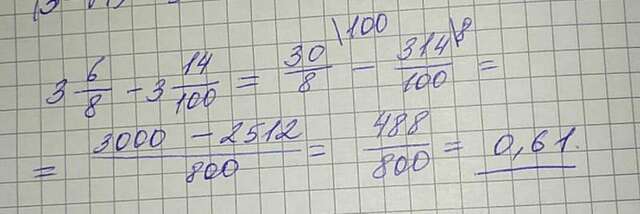 3 6/8 - 3 14/100 = 30/8 \100 - 314/100 \8 =
= (3000 - 2512)/800 = 488/800 = 0,61.